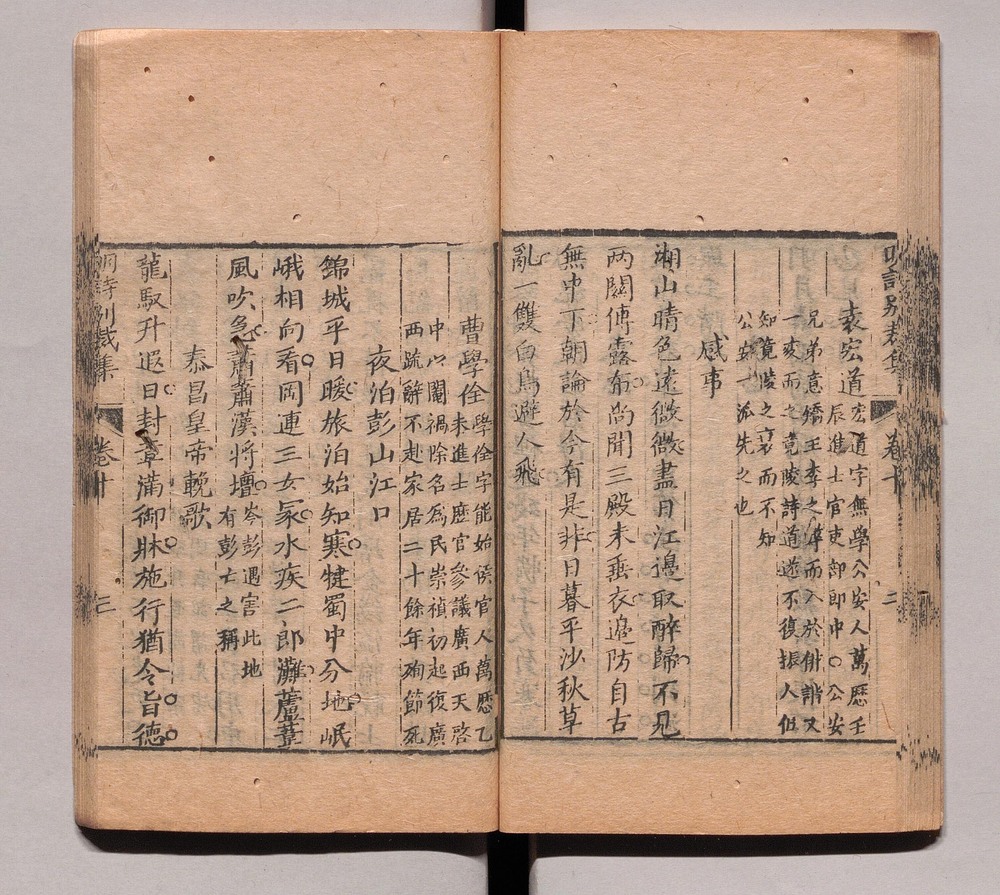 明詩別裁集 卷十 二
袁宏道 宏道字無學公安人萬歷壬
辰進士官吏部郎中○公安
兄弟意矯王李之弊而入於俳諧又
一変而之竟陵詩道遂不復振人但
知竟陵之衰而不知
公安一派先之也
感事
湘山晴色遠微微盡日江邊取醉歸不見
两關傳露布尚聞三殿未垂衣邊防自古
無中下朝論於今有是非日暮平沙秋草
亂一雙白鳥避人飛
曹學佺 學佺字能始侯官人萬歷乙
未進士歷官參議廣西天啓
中以閹禍除名爲民崇禎初起復廣
西疏辭不赴家居二十餘年殉節死
夜泊彭山江口
錦城平日暖旅泊始知寒犍蜀中分地岷
峨相向看岡連三女冢水疾二郎灘蘆葦
風吹急蕭蕭漢將壇 岑彭遇害此地
有彭亡之稱
泰昌皇帝輓歌
龍馭升遐日封章滿御牀施行猶令旨德
明詩別裁集 卷十 三